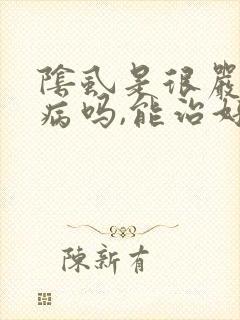 陰虱是很嚴
病吗,能治好
陳新有